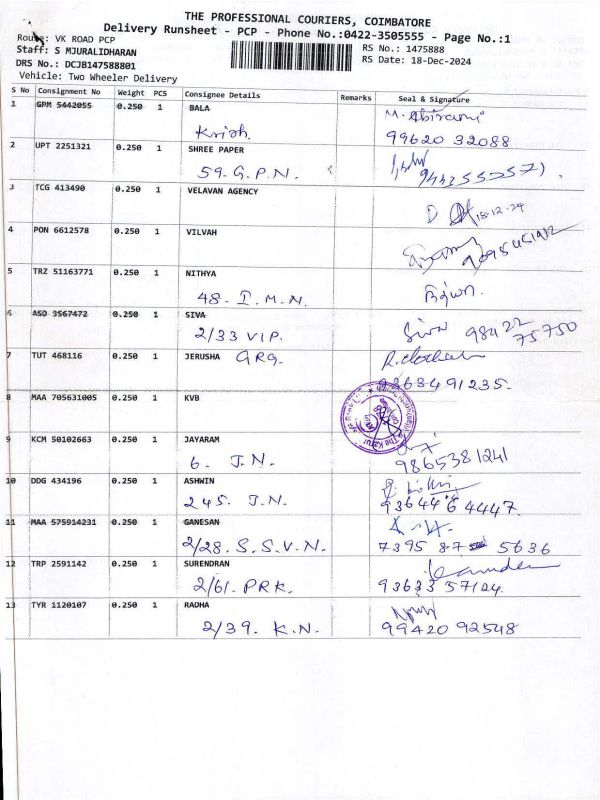 THE PROFESSIONAL COURIERS, COIMBATORE
Delivery Runsheet - PCP - Phone No.:0422-3505555 - Page No.:1
Route: VK ROAD PCP
Staff: S MJURALIDHARAN
DRS No.: DCJB147588801
Vehicle: Two Wheeler Delivery
RS No.: 1475888
RS Date: 18-Dec-2024
S No Consignment No Weight PCS Consignee Details Remarks Seal & Signature
1 GPM 5442055 0.250 1 BALA M. Abirami
Krish 99620 32088
2 UPT 2251321 0.250 1 SHREE PAPER
59. G.P.N.
3 TCG 413490 0.250 1 VELAVAN AGENCY
18-12-24
4 PON 6612578 0.250 1 VILVAH
5 TRZ 51163771 0.250 1 NITHYA
48. I.M.N. நித்யா.
6 ASD 3567472 0.250 1 SIVA
2/33 VIP. Siva 98422 75750
7 TUT 468116 0.250 1 JERUSHA GRG.
9363491235.
8 MAA 705631005 0.250 1 KVB
9 KCM 50102663 0.250 1 JAYARAM
6. J.N. 9865381241
10 DDG 434196 0.250 1 ASHWIN
245. J.N. 93644 64447.
11 MAA 575914231 0.250 1 GANESAN
2/28. S.S.V.N. 7395 87 5636
12 TRP 2591142 0.250 1 SURENDRAN
2/61. PRK. 93633 57124
13 TYR 1120107 0.250 1 RADHA
2/39. K.N. 99420 92548